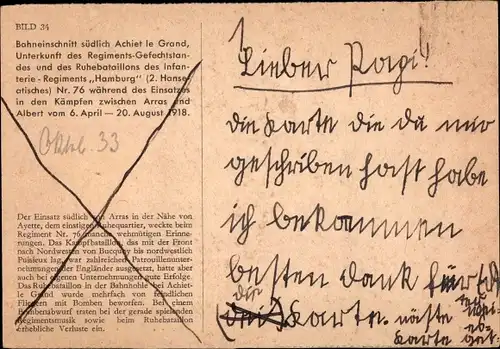 BILD 34
Bahneinschnitt südlich Achiet le Grand,
Unterkunft des Regiments-Gefechtstan-
des und des Ruhebataillons des Infan-
terie-Regiments „Hamburg" (2. Hanse-
atisches) Nr. 76 während des Einsatzes
in den Kämpfen zwischen Arras und
Albert vom 6. April — 20. August 1918.
Oktob. 33
Der Einsatz südlich von Arras in der Nähe von
Ayette, dem einstigen Ruhequartier, weckte beim
Regiment Nr. 76 manche wehmütigen Erinne-
rungen. Das Kampfbataillon, das mit der Front
nach Nordwesten von Bucquoy bis nordwestlich
Puisieux lag, war zahlreichen Patrouillenunter-
nehmungen der Engländer ausgesetzt, hatte aber
auch bei eigenen Unternehmungen gute Erfolge.
Das Ruhebataillon in der Bahnhohle bei Achiet-
le Grand wurde mehrfach von feindlichen
Fliegern mit Bomben beworfen. Bei einem
Bombenabwurf traten bei der gerade spielenden
Regimentsmusik sowie beim Ruhebataillon
erhebliche Verluste ein.
Lieber Papi!
die Karte die du mir
geschriben hast habe
ich bekommen
besten dank für
die
(dei) Karte. näste
Karte